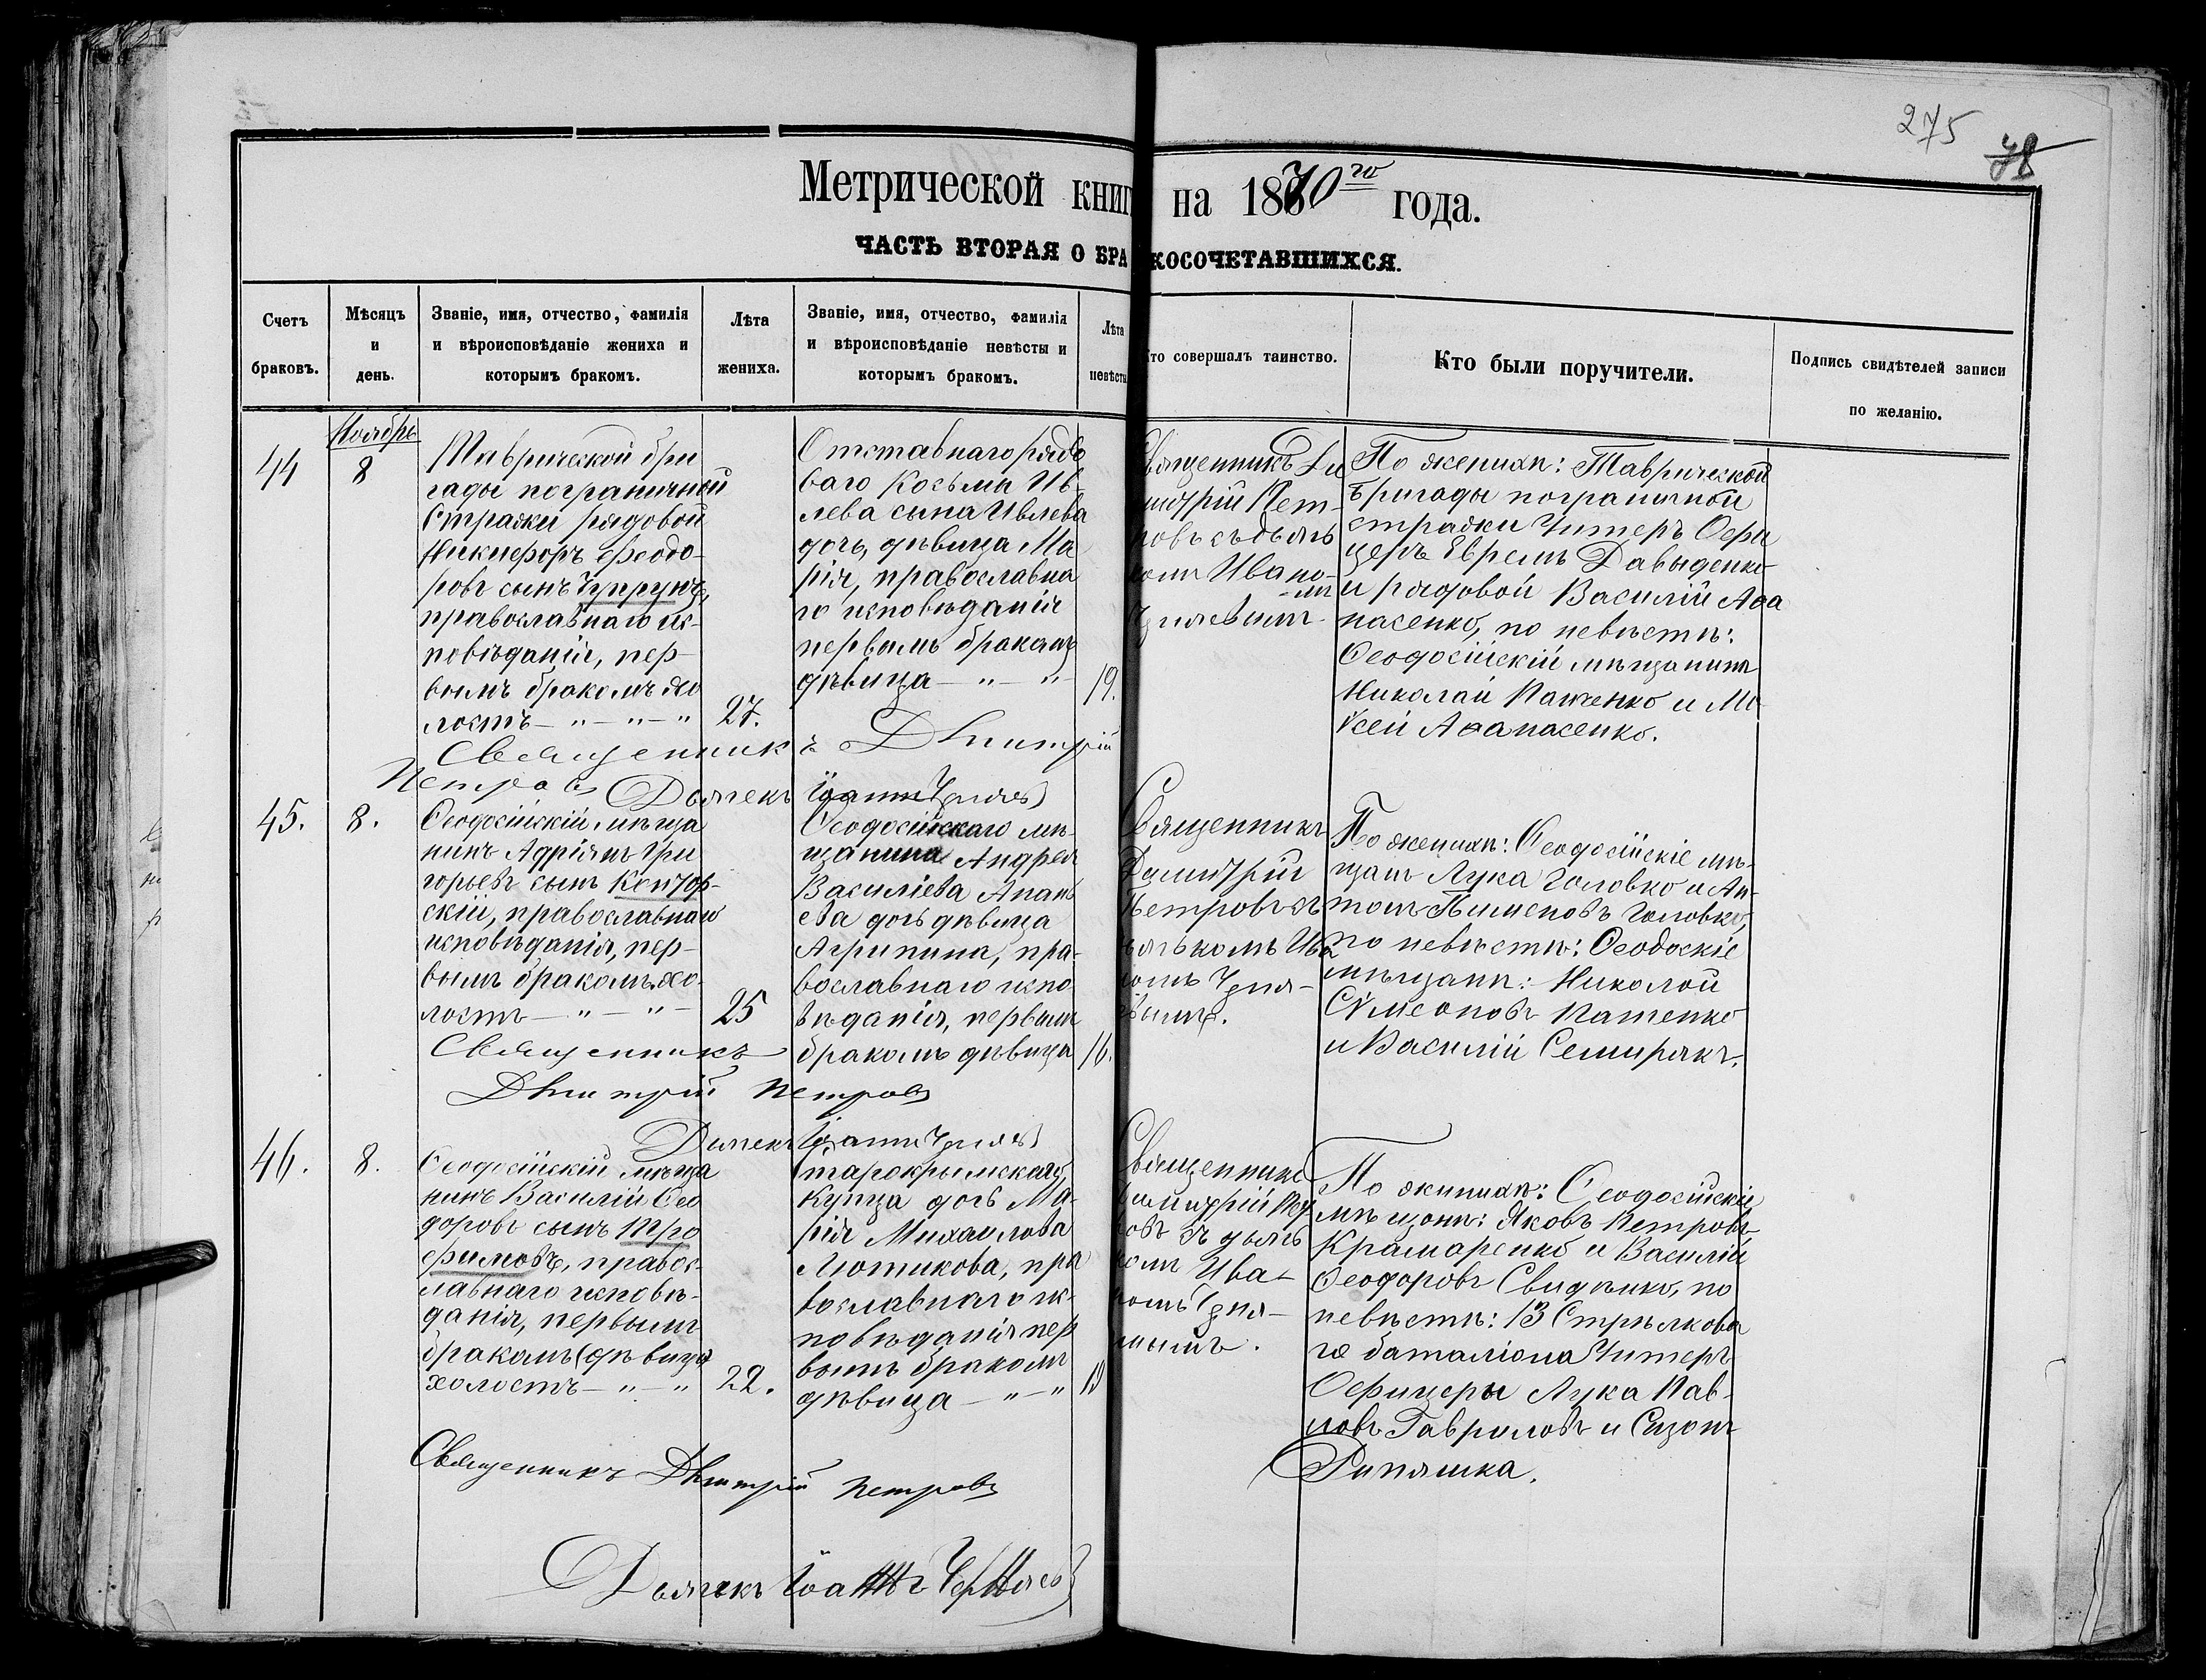 275
78
Метрической книг на 1870го года.
ЧАСТЬ ВТОРАЯ О БРАКОСОЧЕТАВШИХСЯ.
Счетъ браковъ.
Мѣсяцъ и день.
Званіе, имя, отчество, фамилія и вѣроисповѣданіе жениха и которымъ бракомъ.
Лѣта жениха.
Званіе, имя, отчество, фамилія и вѣроисповѣданіе невѣсты и которымъ бракомъ.
Лѣта невѣсты
то совершалъ таинство.
Кто были поручители.
Подпись свидѣтелей записи по желанію.
Ноябрь
44
8
Таврической бри
гады пограничной
Стражи рядовой
Никифоръ Феодо-
ровъ сынъ Чупрунъ,
православнаго ис-
повѣданія, пер-
вымъ бракомъ хо
лостъ — " — " — "
27.
Отставнаго рядо
ваго Косьмы Ив-
лева сына Ивлева
дочь, дѣвица Ма
рія, православна
го исповѣданія
первымъ бракомъ
дѣвица — " — "
19.
Священникъ Ди
митрій Пет-
ровъ съ дьяч
комъ Ивано-
мъ
По женихѣ: Таврической
бригады пограничной
стражи Унтеръ Офи
церъ Ефремъ Давыденко
и рядовой Василій Афа
насенко, по невѣстѣ:
Феодосійскій мѣщанинъ
Николай Пащенко и Мо
Ѵсей Афанасенко.
Священникъ Дмитрій
Петровъ Дьячекъ Іоаннъ
45.
8.
Феодосійскій мѣща
нинъ Адріянъ Гри
горьевъ сынъ
скій, православнаго
исповѣданія, пер-
вымъ бракомъ хо-
лостъ — " — " —
25
Феодосійскаго мѣ-
щанина Андрея
Василіева Анань
ева дочь дѣвица
Агрипина, пра-
вославнаго испо-
вѣданія, первымъ
бракомъ дѣвица
16.
Священникъ
Димитрій
Петровъ съ
дьячькомъ Ива
номъ
По женихѣ: Феодосійскіе мѣ-
щане Лука Головко и Ан-
тонъ Пименовъ Головко,
по невѣстѣ: Феодоскіе
мѣщане: Николай
Сѵмеоновъ Пащенко
и Василій Семирякъ.
Священникъ
Дмитрій Петровъ
Дьячекъ Іоаннъ
46.
8.
Феодосійскій мѣща
нинъ Василій Фео
доровъ сынъ Тро
фимовъ, правос-
лавнаго исповѣ-
данія, первымъ
бракомъ (дѣвицы)
холостъ — " — "
22.
Старокрымскаго
Купца дочь Ма-
рія Михаилова
Лютикова, пра
вославнаго ис-
повѣданія пер
вымъ бракомъ
дѣвица — " — "
19
Священникъ
Димитрій Пет
ровъ съ дьяч
комъ Ива-
номъ
По женихѣ: Феодосійскіе
мѣщане: Яковъ Петровъ
Крамаренко и Василій
Феодоровъ Свидѣнко, по
невѣстѣ: 13 Стрѣлкова
го баталіона Унтеръ
Офицеры Лука Пав-
ловъ Гавриловъ и Сизонъ
Рипяшка.
Священникъ Дмитрій Петровъ
Дьячекъ Іоаннъ Черняевъ